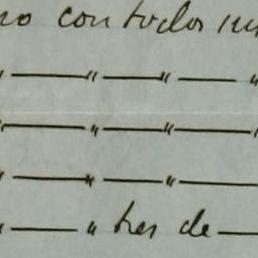 no con todos
" — " — " — "
" — " — " —
" — " — " —
" — " tres de —